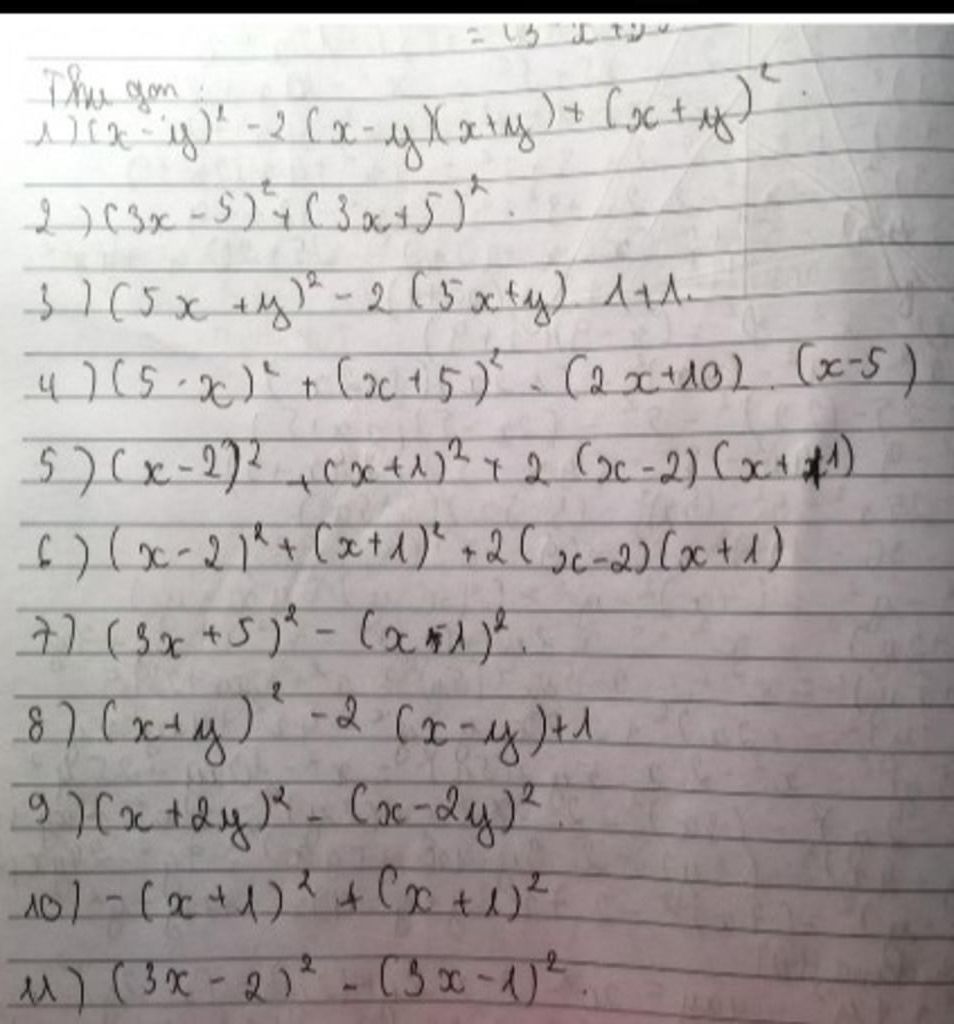 Thu gọn:
1) (x - y)² - 2 (x - y)(x + y) + (x + y)².
2) (3x - 5)² + (3x + 5)².
3) (5x + y)² - 2 (5x + y) 1 + 1.
4) (5 - x)² + (x + 5)² - (2x + 10) . (x - 5)
5) (x - 2)² + (x + 1)² + 2 (x - 2) (x + 1)
6) (x - 2)² + (x + 1)² + 2 (x - 2) (x + 1)
7) (3x + 5)² - (x 1)².
8) (x + y)² - 2 (x - y) + 1
9) (x + 2y)² - (x - 2y)².
10) - (x + 1)² + (x + 1)²
11) (3x - 2)² - (3x - 1)².